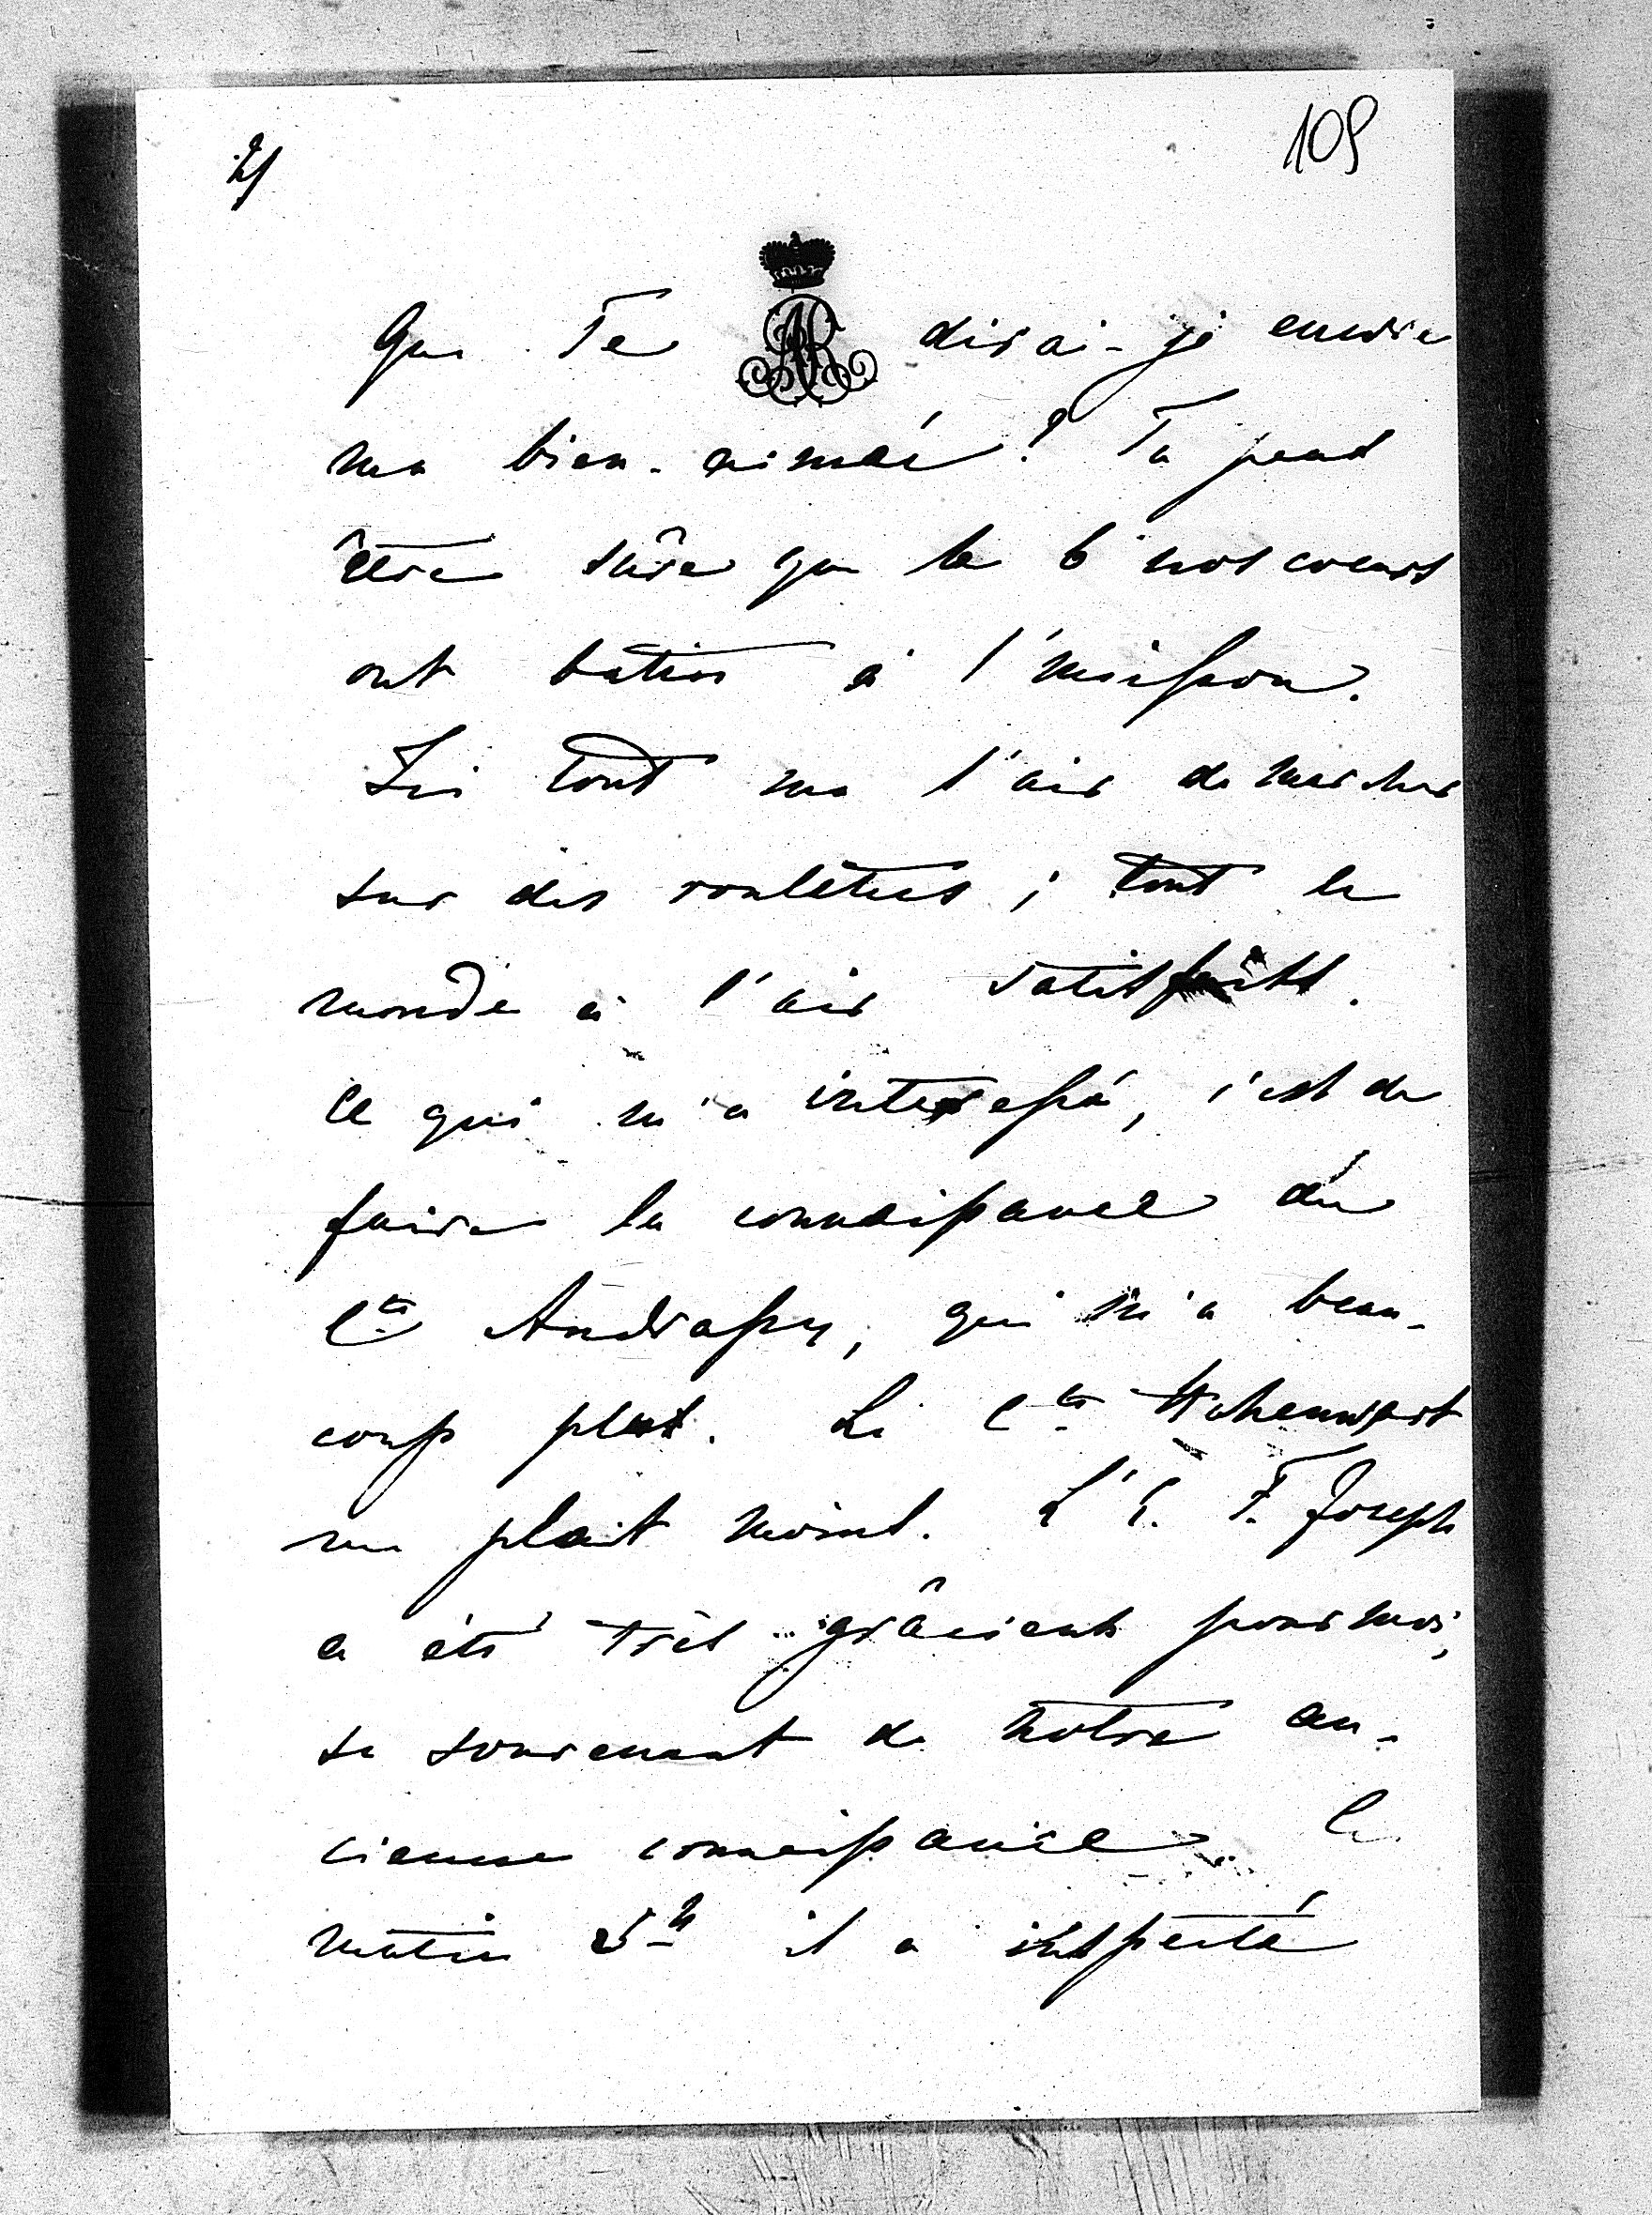 2/
109
AR
Que Te dirai-je encore
ma bien-aimée? Tu peux
être sûre que le 6 nos coeurs
ont battus à l'unisson.
Ici tout me l'air de marcher
sur des roulettes; tout le
monde a l'air satisfaits.
Ce qui m'a interessé, c'est de
faire la connaissance du
Cte Andrassy, qui m'a beau-
coup plut. Le Cte Hohenwart
me plait moins. L'E. F. Joseph
a été très grâcieux pour moi,
se souvenant de notre an-
cienne connaissance. Ce
matin 5h il a inspecté